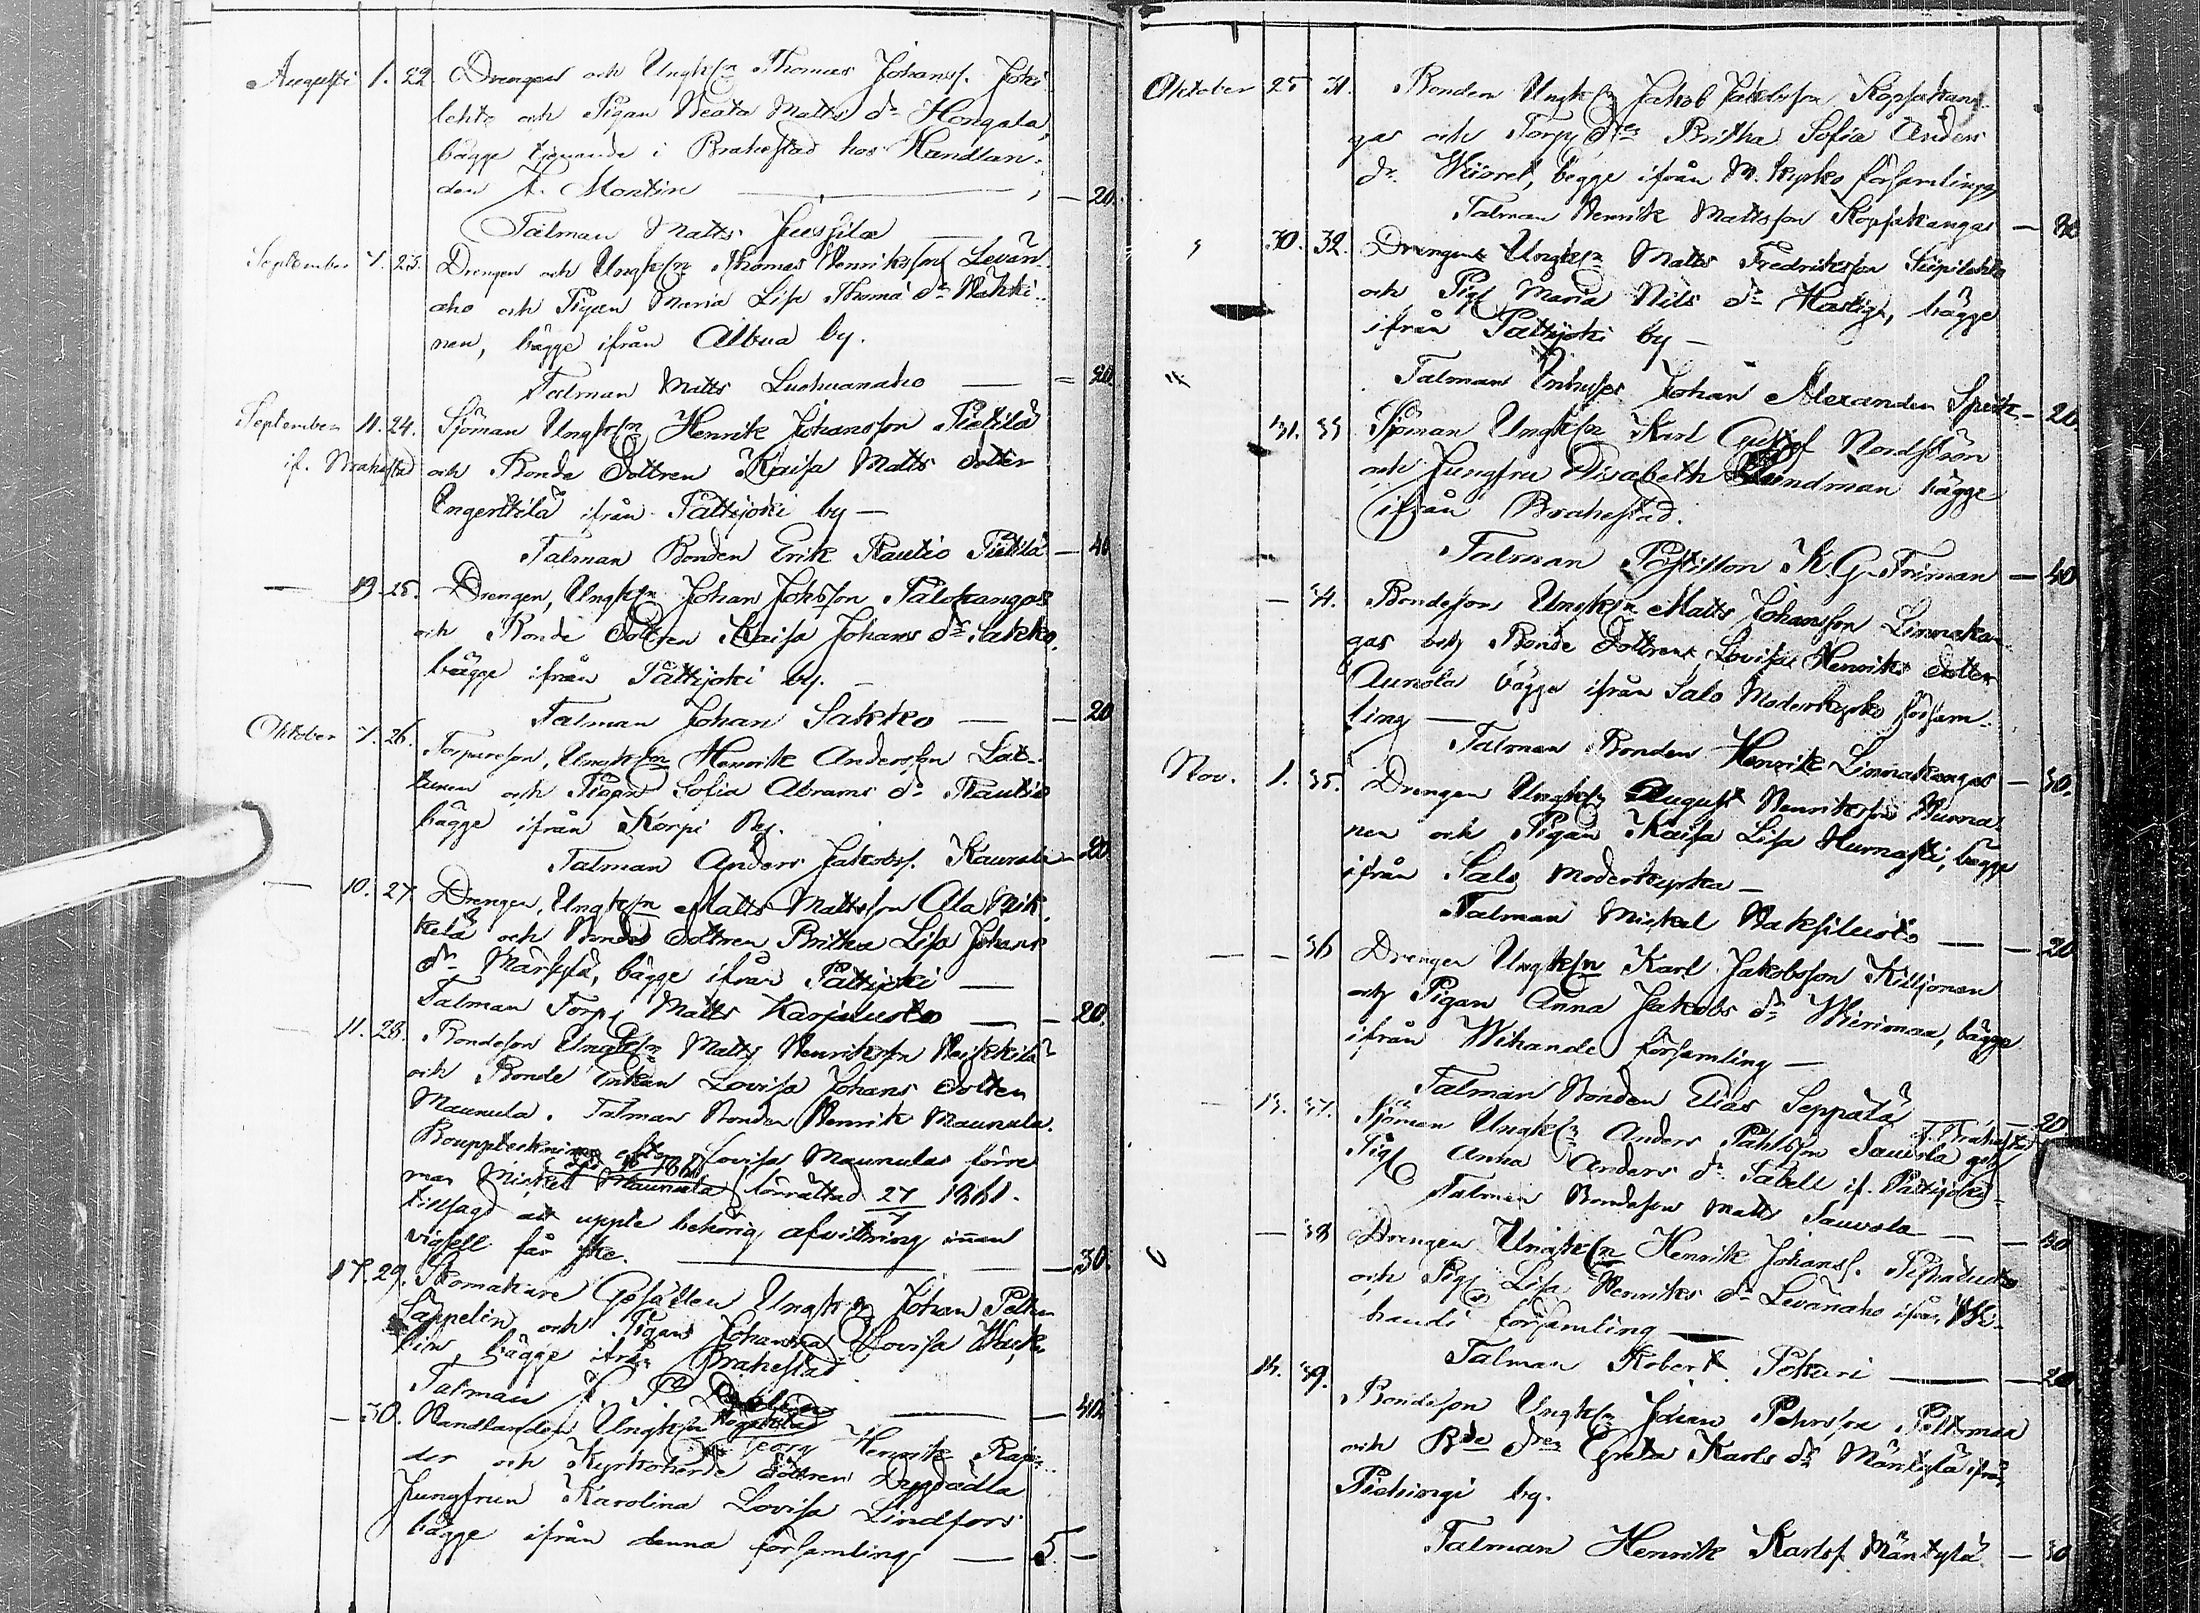 Augusti 1. 22. Drengen och Ungk:n Thomas Johanss. Joki
lehto och Pigan Beata Matts dr Hongala,
bägge tjenande i Brahestad hos Handlan-
den F. Montin — 20.
Talman Matts Juusila
September 7. 23. Drengen och Ungk:n Thomas Henriksson Levän
aho och Pigan Maria Lisa Thoma dr Wähki-
nen, bägge ifrån Albua by.
Talman Matts Luohuanaho — 20.
September 11. 24. Sjöman Ungk:n Henrik Johansson Pietilä
if. Brahestad och Bonde Dottren Kaisa Matts dotter
Ingerttilä ifrån Pattijoki by —
Talman Bonden Erik Rautio Pietilä — 40
— 19. 25. Drengen, Ungk:n Johan Johsson Palokangas
och Bonde Dottren Kaisa Johans dr Sakko,
bägge ifrån Pattijoki by. —
Talman Johan Sakko — 20
Oktober 7. 26. Torpareson, Ungk:n Henrik Andersson Lat-
tunen och Pigan Sofia Abrams dr Rautio
bägge ifrån Korpi By.
Talman Anders Jakobss. Kaunola — 20.
— 10. 27. Drengen, Ungk:n Matts Mattsson Ala Mik
kelä och Bonde dottren Britha Lisa Johans
dr Märsylä, bägge ifrån Pattijoki —
Talman Torp. Matts Karjaluoto — 20.
11. 28. Bondeson Ungk:n Matts Henriksson Heikkilä
och Bonde Enkan Lovisa Johans Dotter
Maunula. Talman Bonden Henrik Maunula.
Bouppteckning efter Lovisa Maunulas förre
man Mickel Maunula förrättad 27/7 1861.
tillsagd att uppte behörig afvittring innan
vigsell får ske. — 30.
17. 29. Skomakare Gesällen Ungk:n Johan Petter
Säppelin, och Pigan Johanna Lovisa Wask
lin, bägge ifrån Brahestad
Talman J. P. — 40.
— 30. Handlanden Ungk:n
Georg Henrik
der och Kyrkoherde Dottren Dygdädla
Jungfrun Karolina Lovisa Lindfors
bägge ifrån denna församling — 5 —
Oktober 25 31. Bonden Ungk:n Jakob Jakobsson Kopsakan-
gas och Torp. dr Britha Sofia Anders
dr. Wiirret, bägge ifrån M. kyrko församlingg
Talman Henrik Mattsson Kopsakangas —
30. 32. Drengen Ungk:n Matts Fredriksson Siipilehto
och Pig. Maria Nils dr Hastig, bägge
ifrån Pattijoki by —
Talman Johan Alexander — 20.
31. 33 Sjöman Ungk:n Karl Gustaf Nordström
och Jungfru Elisabeth Lindman bägge
ifrån Brahestad.
Talman Postillon K. G. Friman — 40
— 34. Bondeson Ungk:n Matts Johansson Linnakan
gas och Bonde Dottren Lovisa Henriks dotter
Aunola bägge ifrån Salo Moderkyrko försam-
ling —
Talman Bonden Henrik Linnakangas — 30.
Nov. 1. 35. Drengen Ungk:n August Henriksson Hurna-
nen och Pigan Kaisa Lisa Hurnasti, bägge
ifrån Salo moderkyrka —
Talman Mickel Haksiluoto — 20
— 36 Drengen Ungk:n Karl Jakobsson Kiljonen
och Pigan Anna Jakobs dr Wirimaa, bägge
ifrån Wihandi församling —
Talman Bonden Elias Seppälä — 20
— 13. 37. Sjöman Ungk:n Anders Pahlsson Saurola if. Brahestad och
Pig. Anna Anders dr. Sabell if. Pattijoki —
Talman Bondeson Matts Saurola — 30
— 38 Drengen Ungk:n Henrik Johanss.
och Pig. Lisa Henriks dr Levänaho ifrån Wi-
handi församling —
Talman Robert Pekuri — 20.
14. 39. Bondeson Ungk:n Johan Pehrsson Peltomaa
och Bde dr Greta Karls dr Mäntylä ifrån
Piehingi by.
Talman Henrik Karlss. Mäntylä — 30